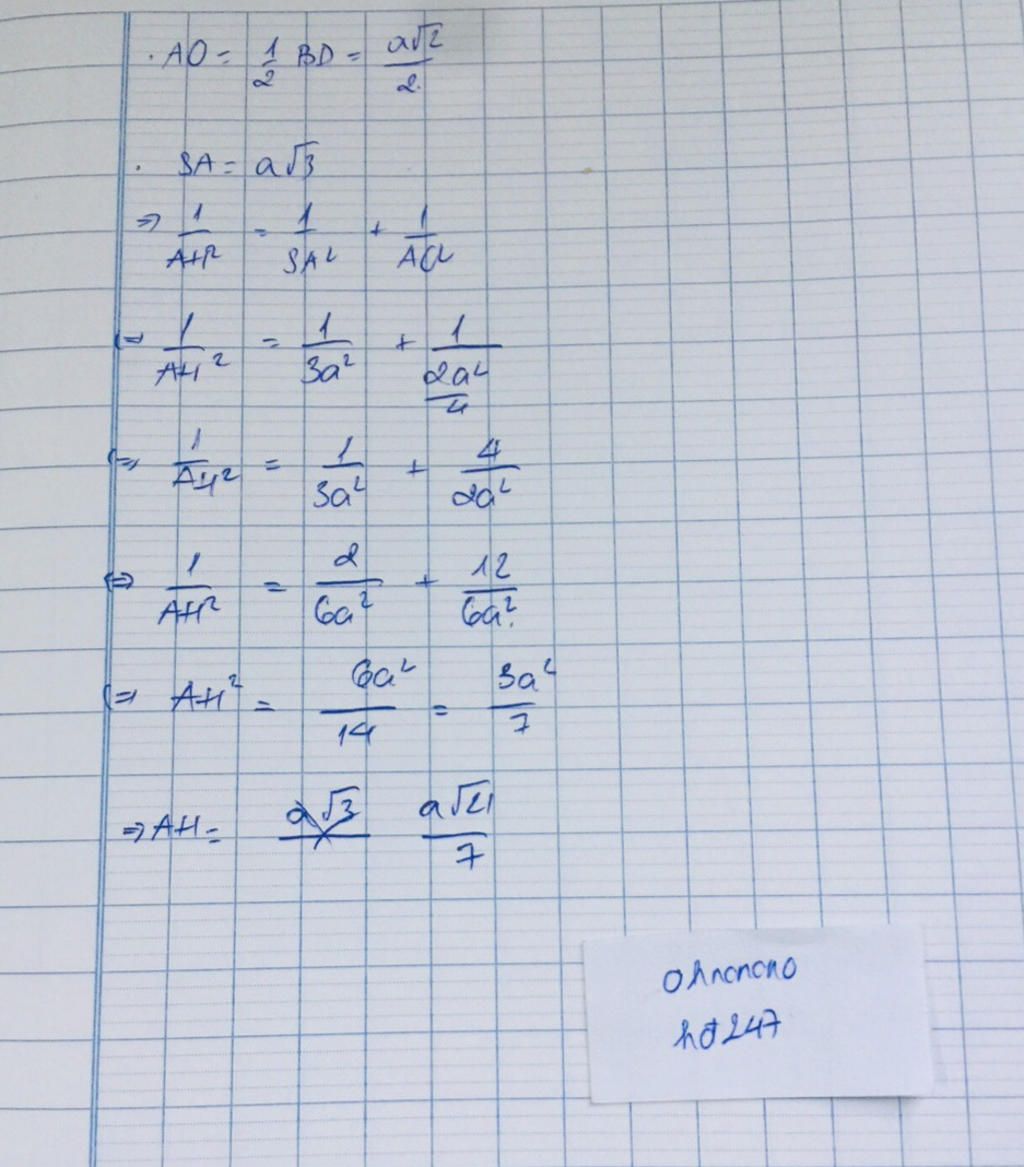 . AO = 1/2 BD = a√2/2.
. SA = a√3
⇒ 1/AH² = 1/SA² + 1/AO²
⇔ 1/AH² = 1/3a² + 1/(2a²/4)
⇔ 1/AH² = 1/3a² + 4/2a²
⇔ 1/AH² = 2/6a² + 12/6a².
⇔ AH² = 6a²/14 = 3a²/7
⇒ AH = a√21/7
ohnonono
hd247